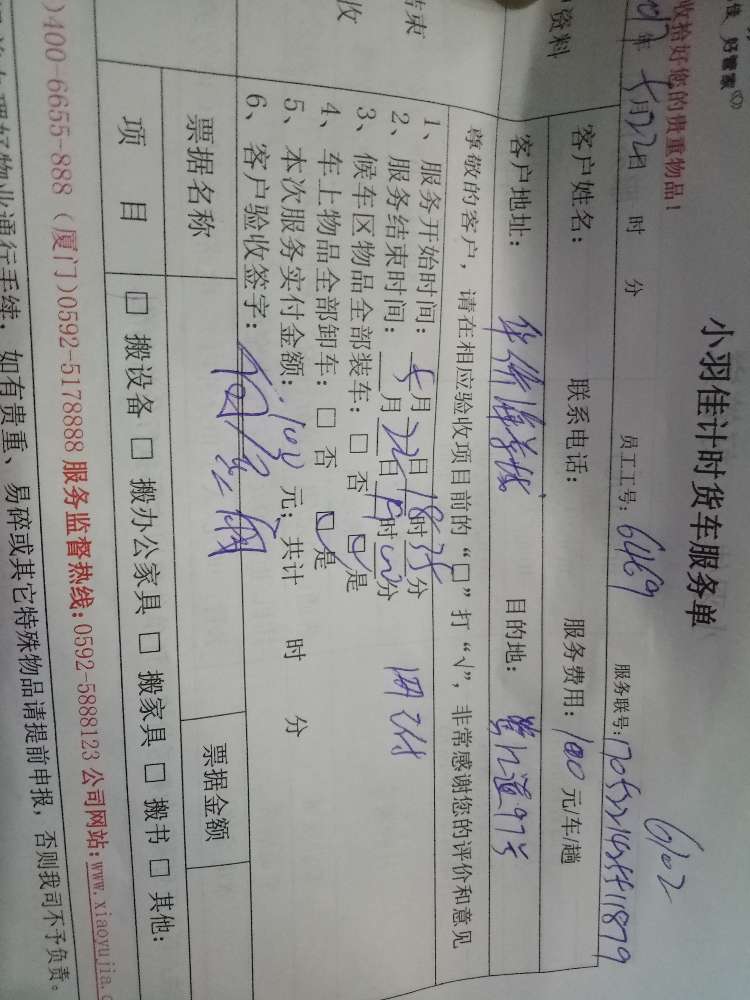 佳 好管家
收拾好您的贵重物品！
小羽佳计时货车服务单
6102
年5月22日 时 分 员工工号：6469 服务联号：
户资料 客户姓名： 联系电话： 服务费用：100元/车/趟
客户地址： 目的地： 97号
尊敬的客户，请在相应验收项目前的“□”打“√”，非常感谢您的评价和意见
结束
收
1、服务开始时间：5月22日18时35分
2、服务结束时间： 月22日19时 分
3、候车区物品全部装车：□ 否 □ 是
4、车上物品全部卸车：□ 否 □ 是
5、本次服务实付金额：100元；共计 时 分
6、客户验收签字：
票据名称 票据金额
项 目 □ 搬设备 □ 搬办公家具 □ 搬家具 □ 搬书 □ 其他：
)400-6655-888（厦门）0592-5178888 服务监督热线：0592-5888123 公司网站：www.xiaoyujia.c
办理好物业通行手续；如有贵重、易碎或其它特殊物品请提前申报，否则我司不予负责。